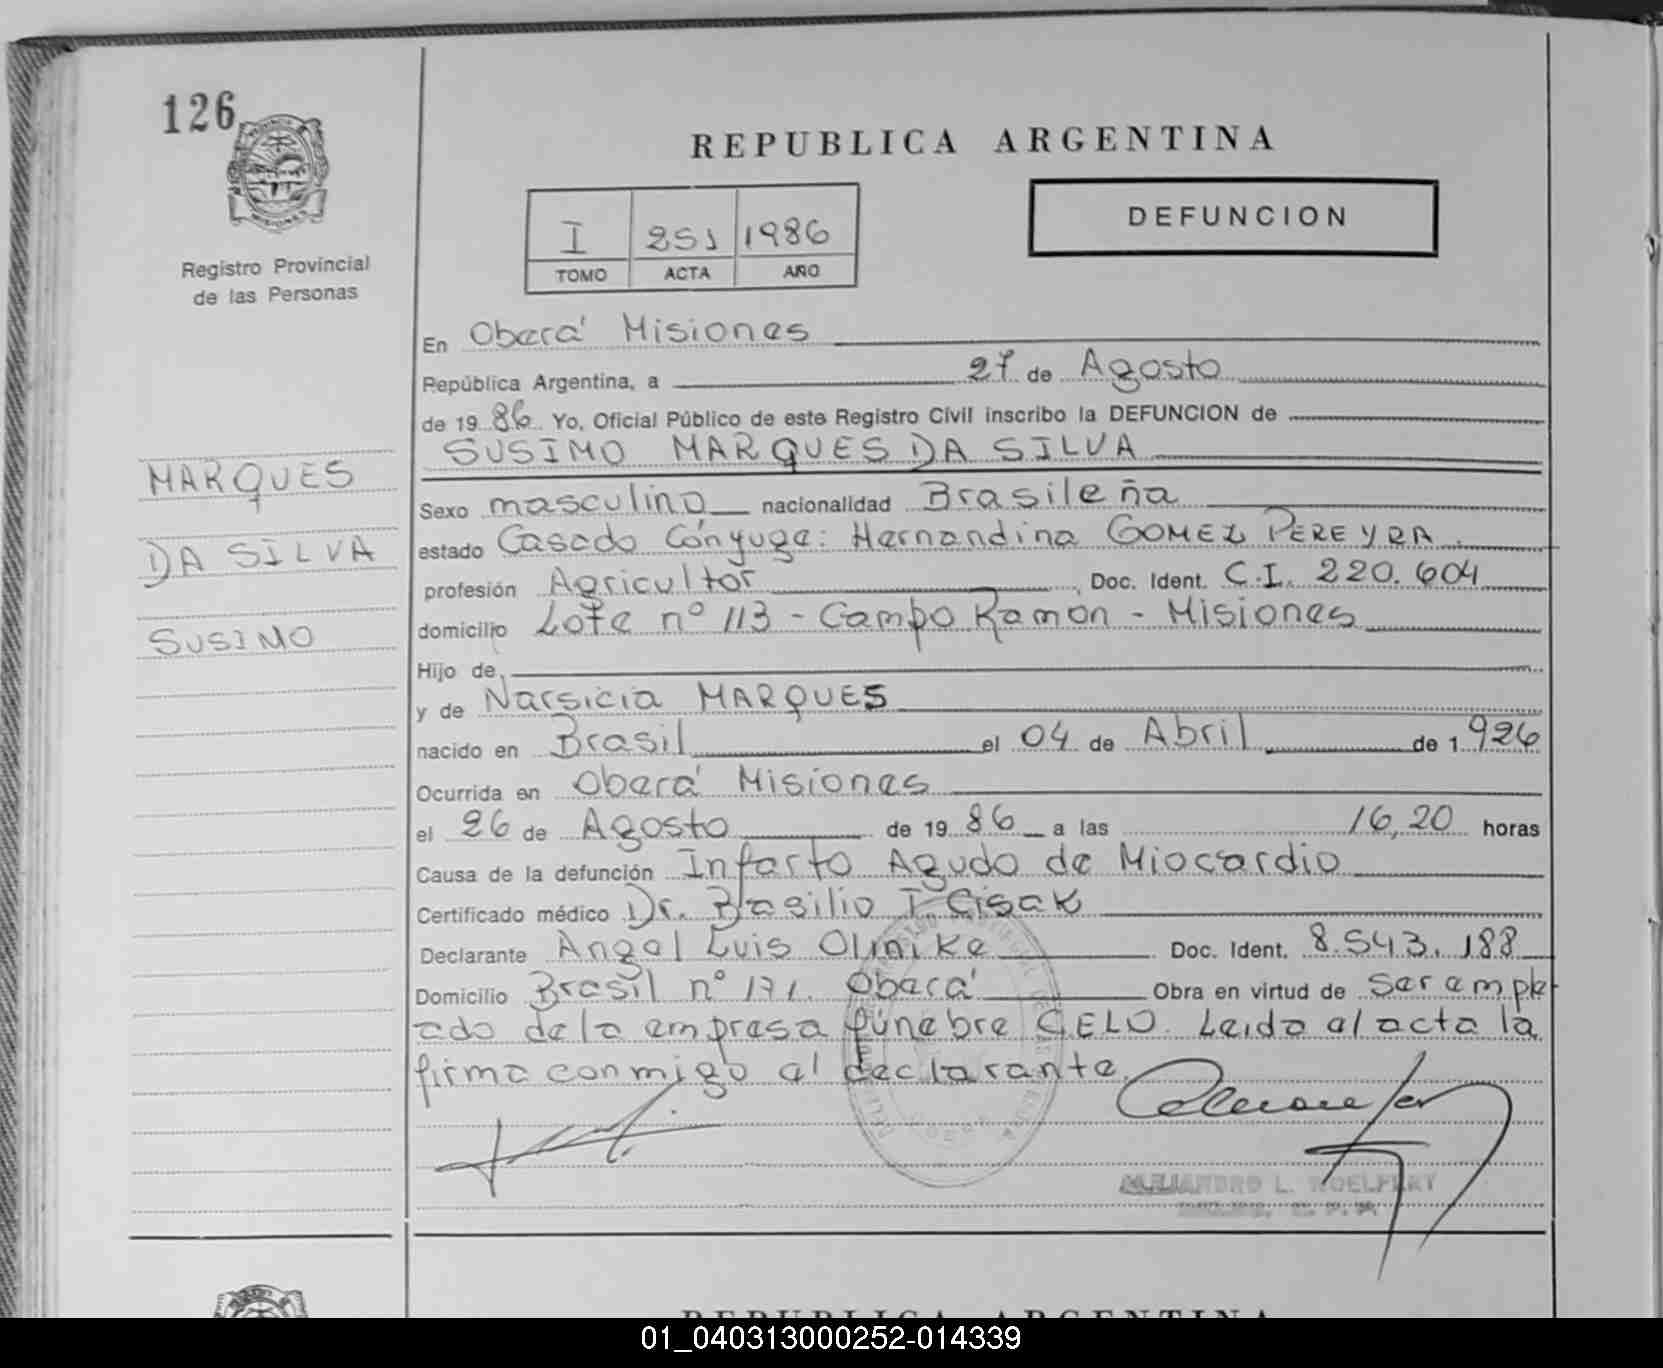 126
PROVINCIA
MISIONES
Registro Provincial
de las Personas
REPUBLICA ARGENTINA
I 251 1986
TOMO ACTA AÑO
DEFUNCION
MARQUES
DA SILVA
SUSIMO
En Oberá Misiones
República Argentina, a 27 de Agosto
de 1986 Yo, Oficial Público de este Registro Civil inscribo la DEFUNCION de
SUSIMO MARQUES DA SILVA
Sexo masculino nacionalidad Brasileña
estado Casado Cónyuge: Hernandina GOMEZ PEREYRA.
profesión Agricultor, Doc. Ident. C.I. 220.604
domicilio Lote nº 113 - Campo Ramon - Misiones
Hijo de
y de Narsicia MARQUES
nacido en Brasil el 04 de Abril de 1926
Ocurrida en Oberá Misiones
el 26 de Agosto de 1986 a las 16,20 horas
Causa de la defunción Infarto Agudo de Miocardio
Certificado médico Dr. Basilio I. Cisak
Declarante Angel Luis Olinike Doc. Ident. 8.543.188
Domicilio Brasil nº 171. Oberá Obra en virtud de ser emple
ado de la empresa fúnebre C.E.L.O. Leida el acta la
firma conmigo el declarante.
ALEJANDRO L. WOELFERT
REPUBLICA ARGENTINA
01_040313000252-014339